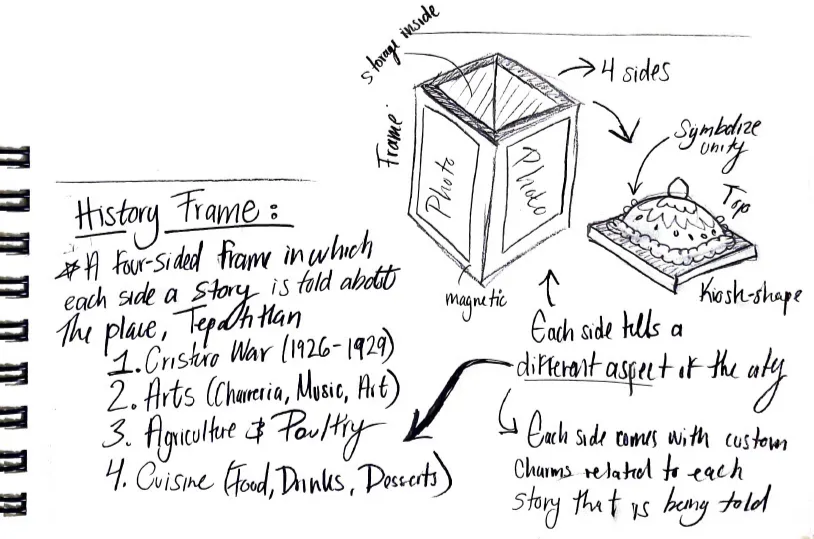 storage inside
4 sides
Frame
Photo
Photo
Symbolize
unity
Top
magnetic
Kiosh-shape
History Frame:
A four-sided frame in which
each side a story is told about
the place, Tepatitlan
1. Cristero War (1926-1929)
2. Arts (Charreria, Music, Art)
3. Agriculture & Poultry
4. Cuisine (Food, Drinks, Desserts)
Each side tells a
different aspect of the city
Each side comes with custom
charms related to each
story that is being told